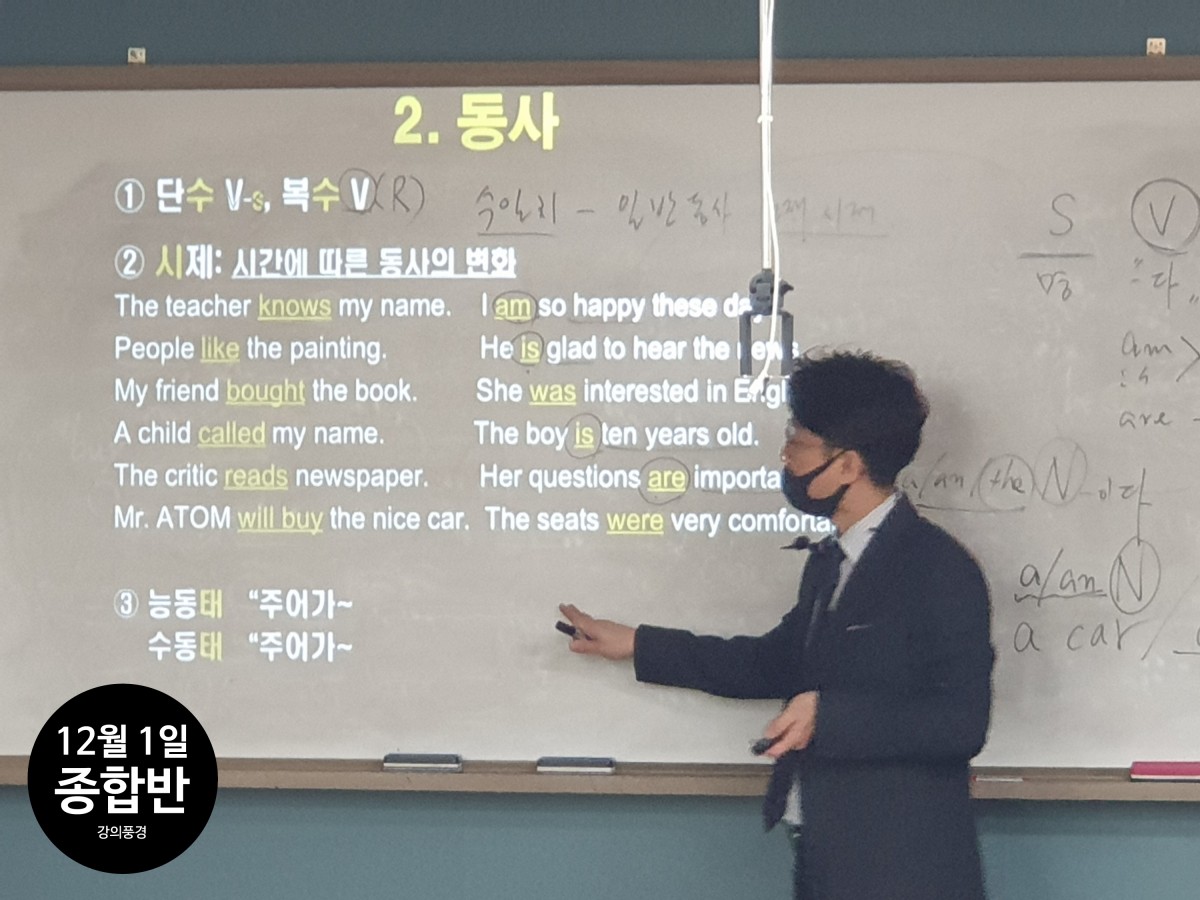 2. 동사
① 단수 V-s, 복수 V (R) 수일치 - 일반동사 시제
② 시제: 시간에 따른 동사의 변화
The teacher knows my name. I am so happy these day
People like the painting. He is glad to hear the news.
My friend bought the book. She was interested in Engl
A child called my name. The boy is ten years old.
The critic reads newspaper. Her questions are importa
Mr. ATOM will buy the nice car. The seats were very comforta
③ 능동태 “주어가~
수동태 “주어가~
S V
명 다
am
is
are
a/an, the N -이다
a/an N
a car /
12월 1일
종합반
강의풍경